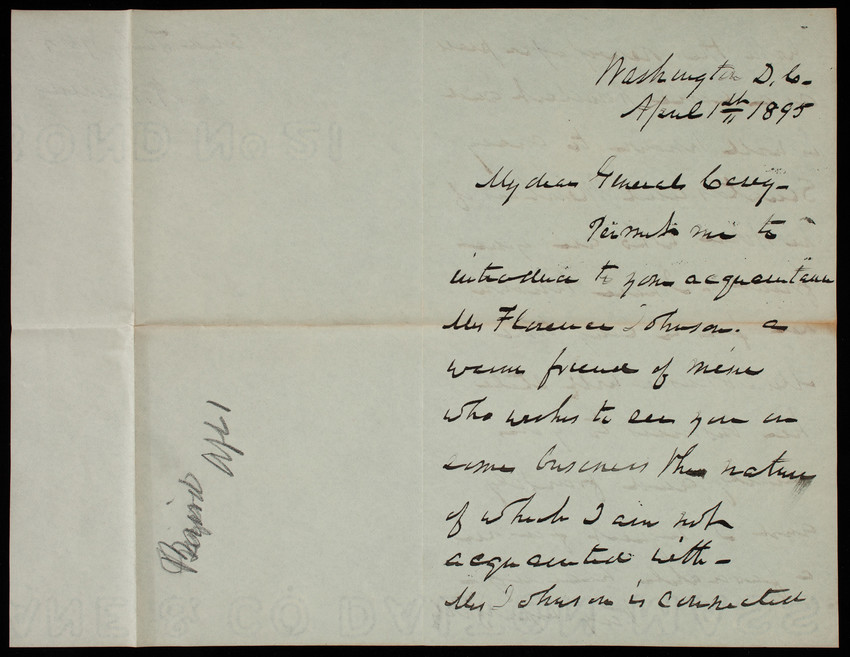 Washington D.C.
April 1st 1895
My dear General Casey-
Permit me to
introduce to your acquaintance
Mrs Florence Johnson. a
warm friend of mine
who wishes to see you on
some business the nature
of which I am not
acquainted with-
Mrs Johnson is connected
Baird
Apl 1
BOND No 21